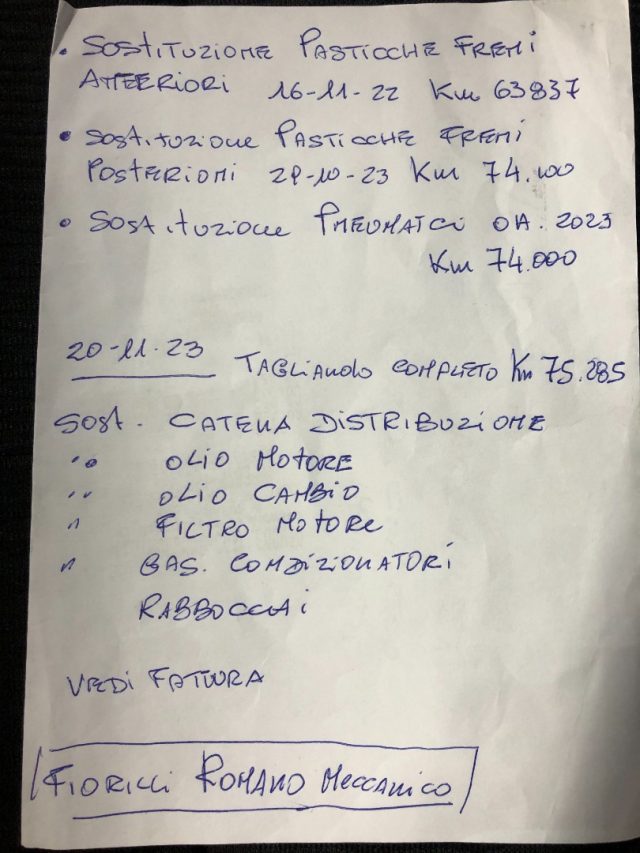 • SOSTITUZIONE PASTICCHE FRENI
ANTERIORI 16-11-22 Km 63837
• SOSTITUZIONE PASTICCHE FRENI
POSTERIORI 10-23 Km 74.100
• SOSTITUZIONE PNEUMATICI 2023
Km 74.000
20-11-23 TAGLIANDO COMPLETO Km 75.285
SOST. CATENA DISTRIBUZIONE
" OLIO MOTORE
" OLIO CAMBIO
" FILTRO MOTORE
" GAS. CONDIZIONATORI
RABBOCCHI
VEDI FATTURA
FIORILLI ROMANO MECCANICO